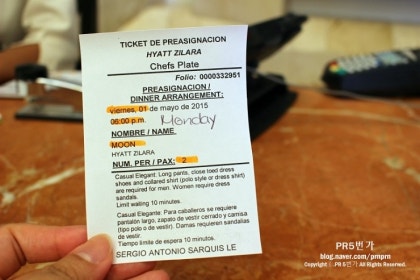 TICKET DE PREASIGNACION
HYATT ZILARA
Chefs Plate
Folio: 0000332951
PREASIGNACION /
DINNER ARRANGEMENT:
viernes, 01 de mayo de 2015
06:00 p.m. Monday
NOMBRE / NAME
MOON
HYATT ZILARA
NUM. PER / PAX: 2
Casual Elegant: Long pants, close toed dress
shoes and collared shirt (polo style or dress shirt)
are required for men. Women require dress
sandals.
Limit waiting 10 minutes.
Casual Elegante: Para caballeros se requiere
pantalón largo, zapato de vestir cerrado y camisa
(tipo polo o de vestir). Damas requieren sandalias
de vestir.
Tiempo limite de espera 10 minutos.
SERGIO ANTONIO SARQUIS LE
PR5번가
blog.naver.com/pmpm
Copyright ⓒ PR5번가 All Rights Reserved.